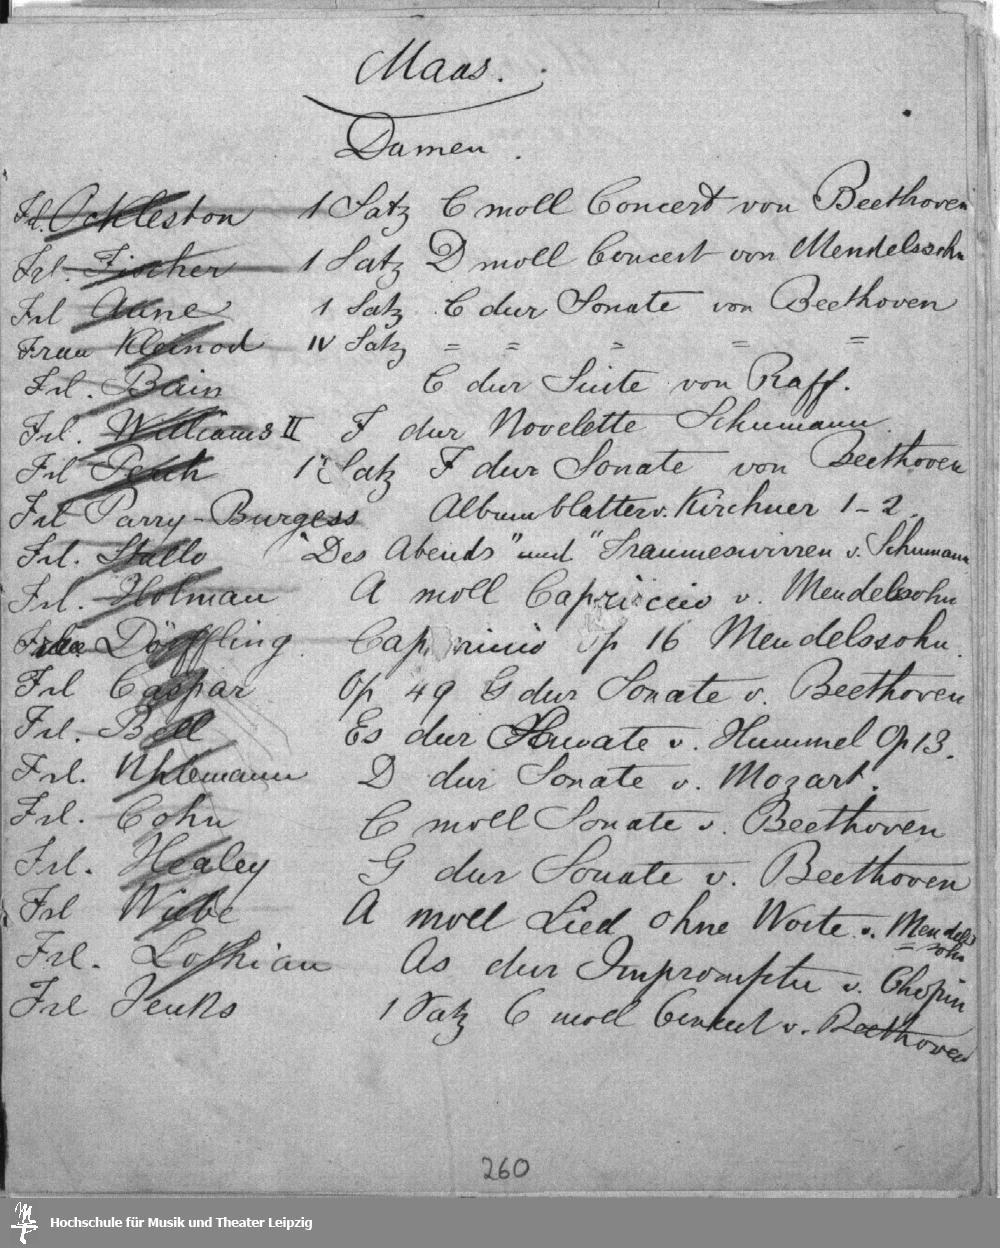 Maas.
Damen.
Frl. Ockleston 1 Satz C moll Concert von Beethoven
Frl. Fischer 1 Satz D moll Concert von Mendelssohn
Frl Aune 1 Satz C dur Sonate von Beethoven
Frau Kleinod IV Satz = = = = =
Frl. Bain C dur Suite von Raff.
Frl. Williams II F dur Novelette Schumann
Frl 1 Satz F dur Sonate von Beethoven
Frl Parry-Burgess Albumblätter v. Kirchner 1-2.
Frl. Stallo "Des Abends" und "Traumeswirren v. Schumann
Frl. Holman A moll Capriccio v. Mendelssohn
Döffling Op 16 Mendelssohn.
Frl Caspar Op 49 G dur Sonate v. Beethoven
Frl. Bell Es dur v. Hummel Op 13.
Frl. Uhlemann D dur Sonate v. Mozart.
Frl. Cohn C moll Sonate v. Beethoven
Frl. Healey G dur Sonate v. Beethoven
Frl Wiebe A moll Lied ohne Worte v. Mendels=
sohn
Frl. Lothian As dur Impromptu v. Chopin
Frl Jenks 1 Satz C moll Concert v. Beethoven
260
Hochschule für Musik und Theater Leipzig